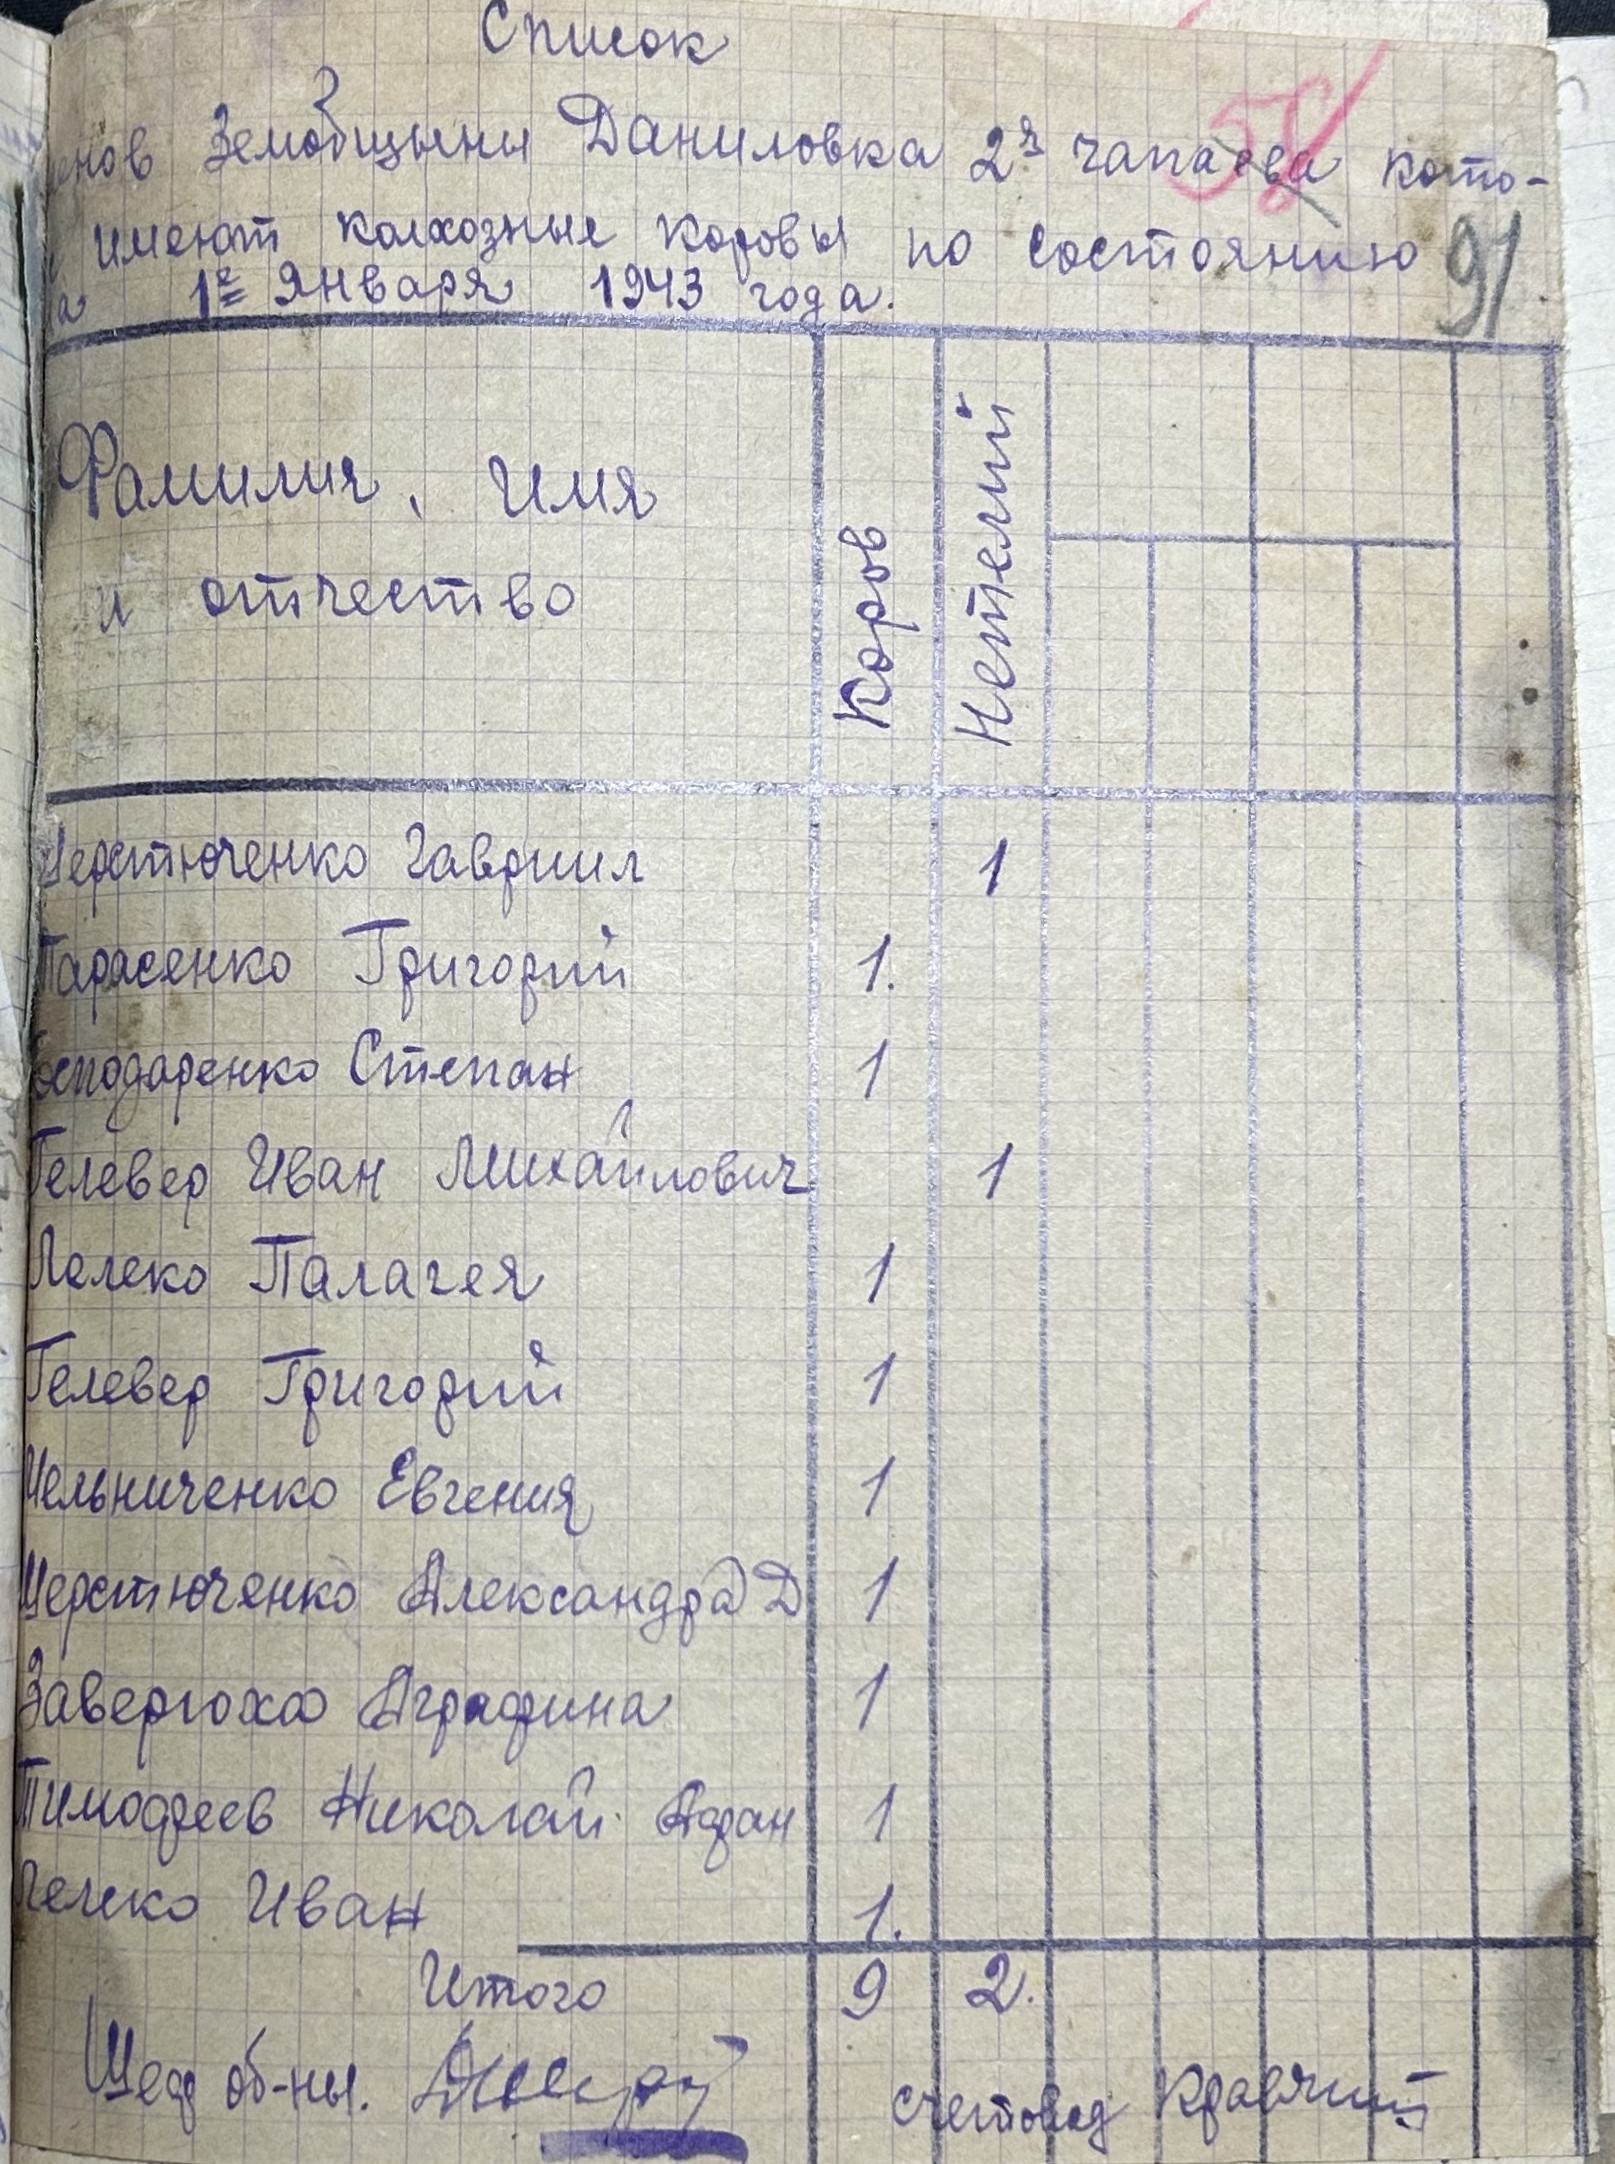 Список
енов Земобщыны Даниловка 2я чапаева кото-
е имеют колхозные коровы по состоянию
а 1е Января 1943 года.
58
91
Фамилия, Имя
и отчество
Коров
Нетелий
Шерстюченко Гавриил 1
Тарасенко Григорий 1.
Господаренко Степан 1
Гелевер Иван Михайлович 1
Лелеко Палагея 1
Гелевер Григорий 1
Мельниченко Евгения 1
Шерстюченко Александра Д 1
Заверюха Аграфина 1
Тимофеев Николай Афан 1
Лелеко Иван 1.
Итого 9 2.
об-ны.
счетовод Кравчий